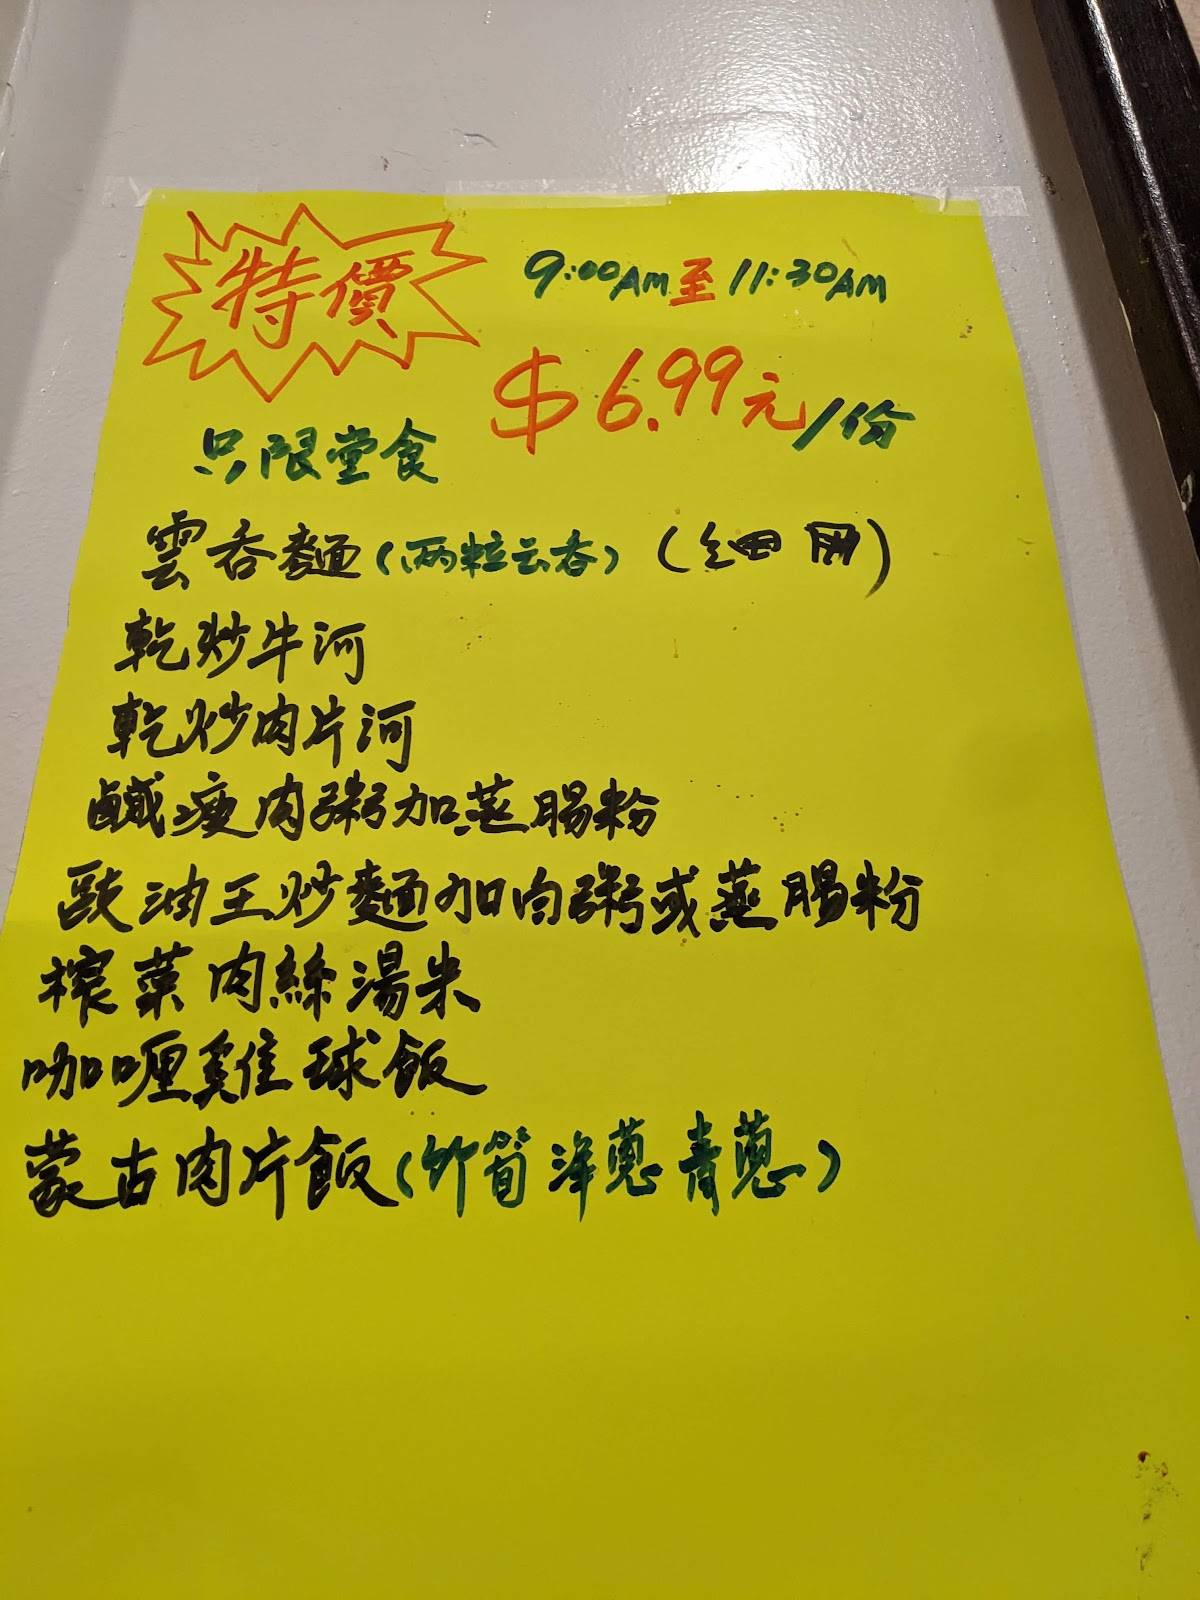 特價
9:00AM至11:30AM
$6.99元/份
只限堂食
雲吞麵(两粒云吞)(细
乾炒牛河
乾炒肉片河
鹹瘦肉粥加蒸腸粉
豉油王炒麵加肉粥或蒸腸粉
榨菜肉絲湯米
咖喱雞球飯
蒙古肉片飯(竹筍洋蔥青蔥)